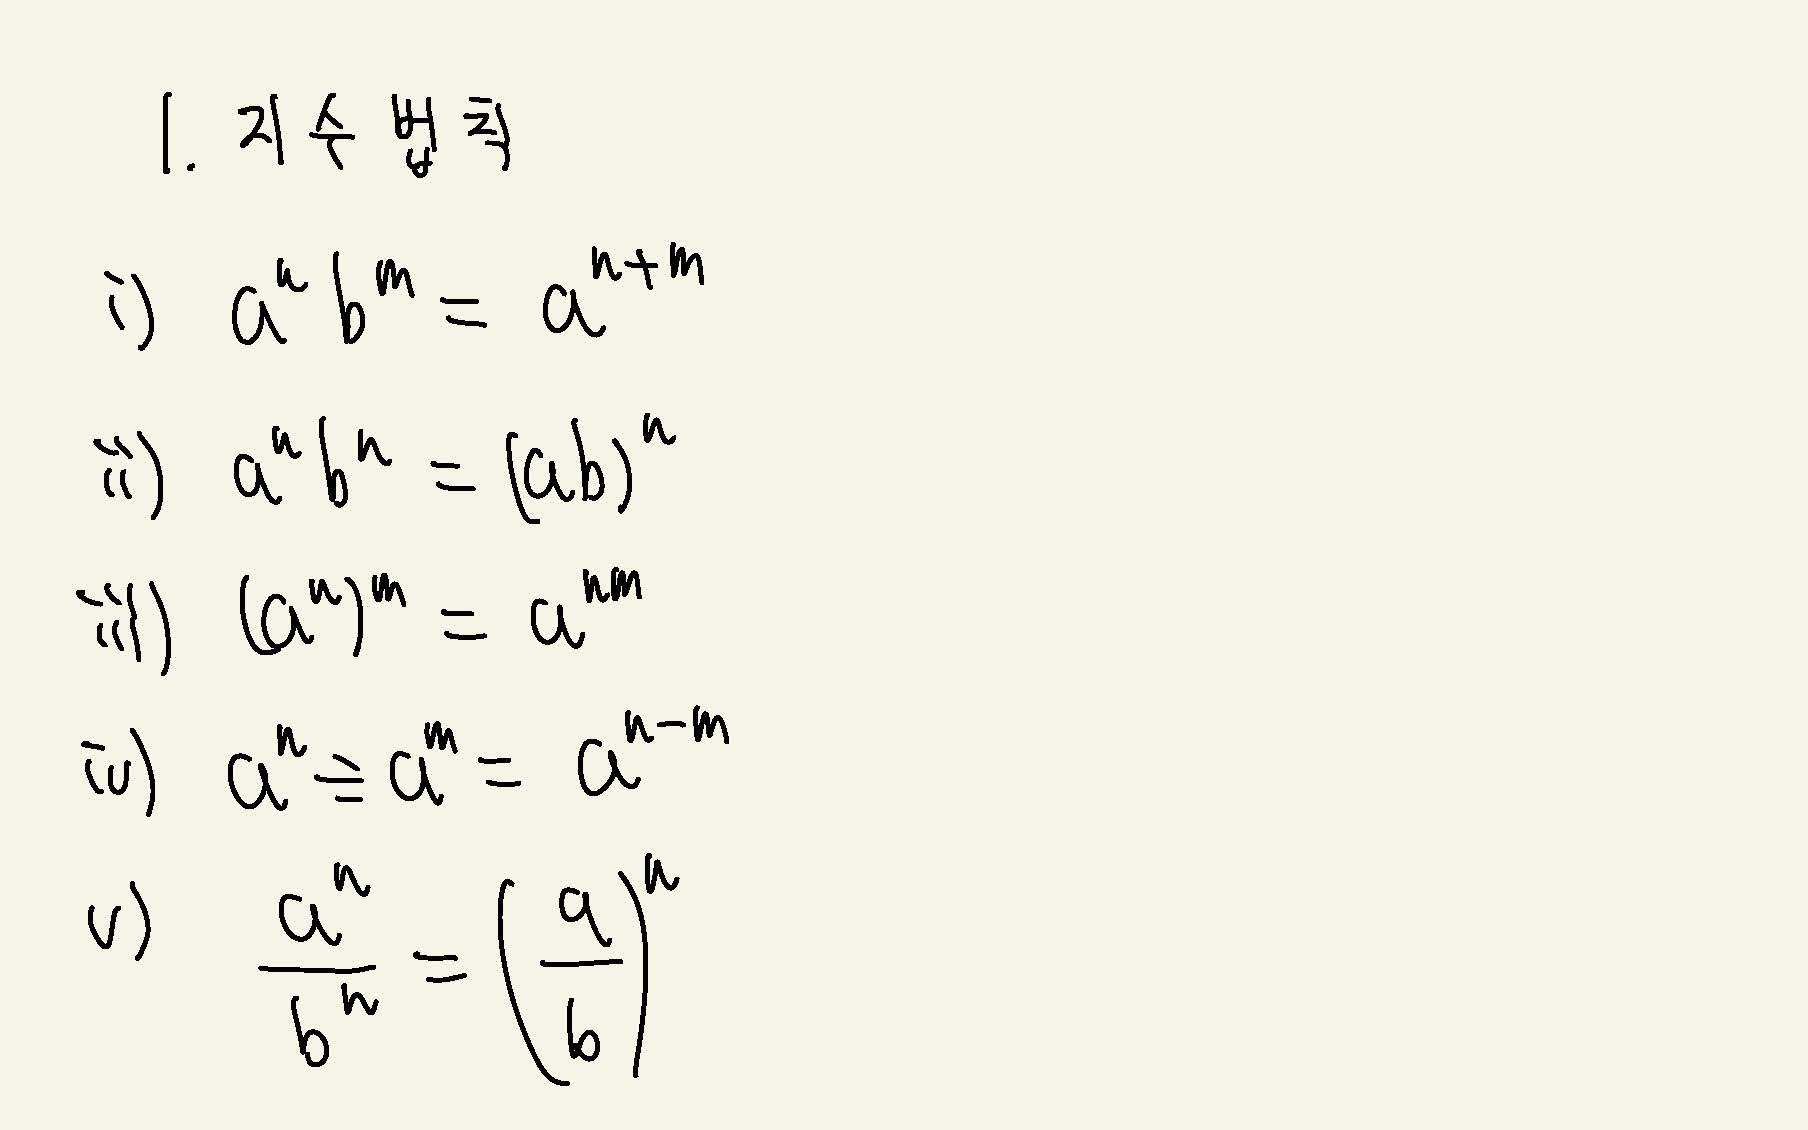 1. 지수법칙
i) aⁿ bᵐ = aⁿ⁺ᵐ
ii) aⁿ bⁿ = (ab)ⁿ
iii) (aⁿ)ᵐ = aⁿᵐ
iv) aⁿ ÷ aᵐ = aⁿ⁻ᵐ
v) aⁿ/bⁿ = (a/b)ⁿ